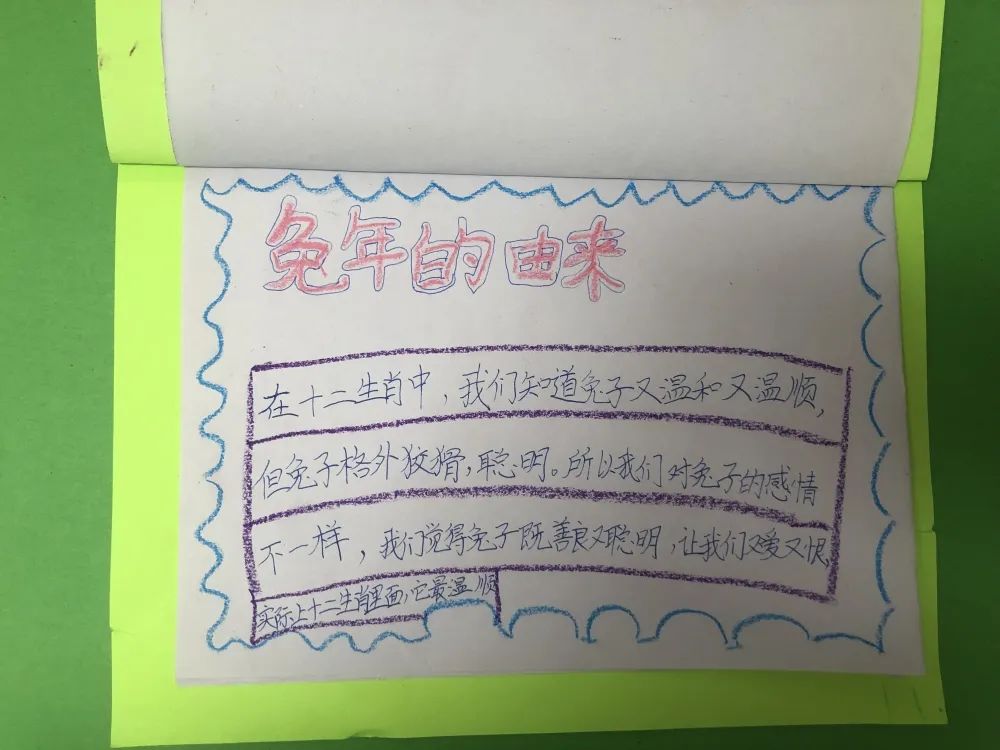 兔年的由来
在十二生肖中，我们知道兔子又温和又温顺，
但兔子格外狡猾，聪明。所以我们对兔子的感情
不一样，我们觉得兔子既善良又聪明，让我们又爱又恨，
实际上十二生肖里面，它最温顺